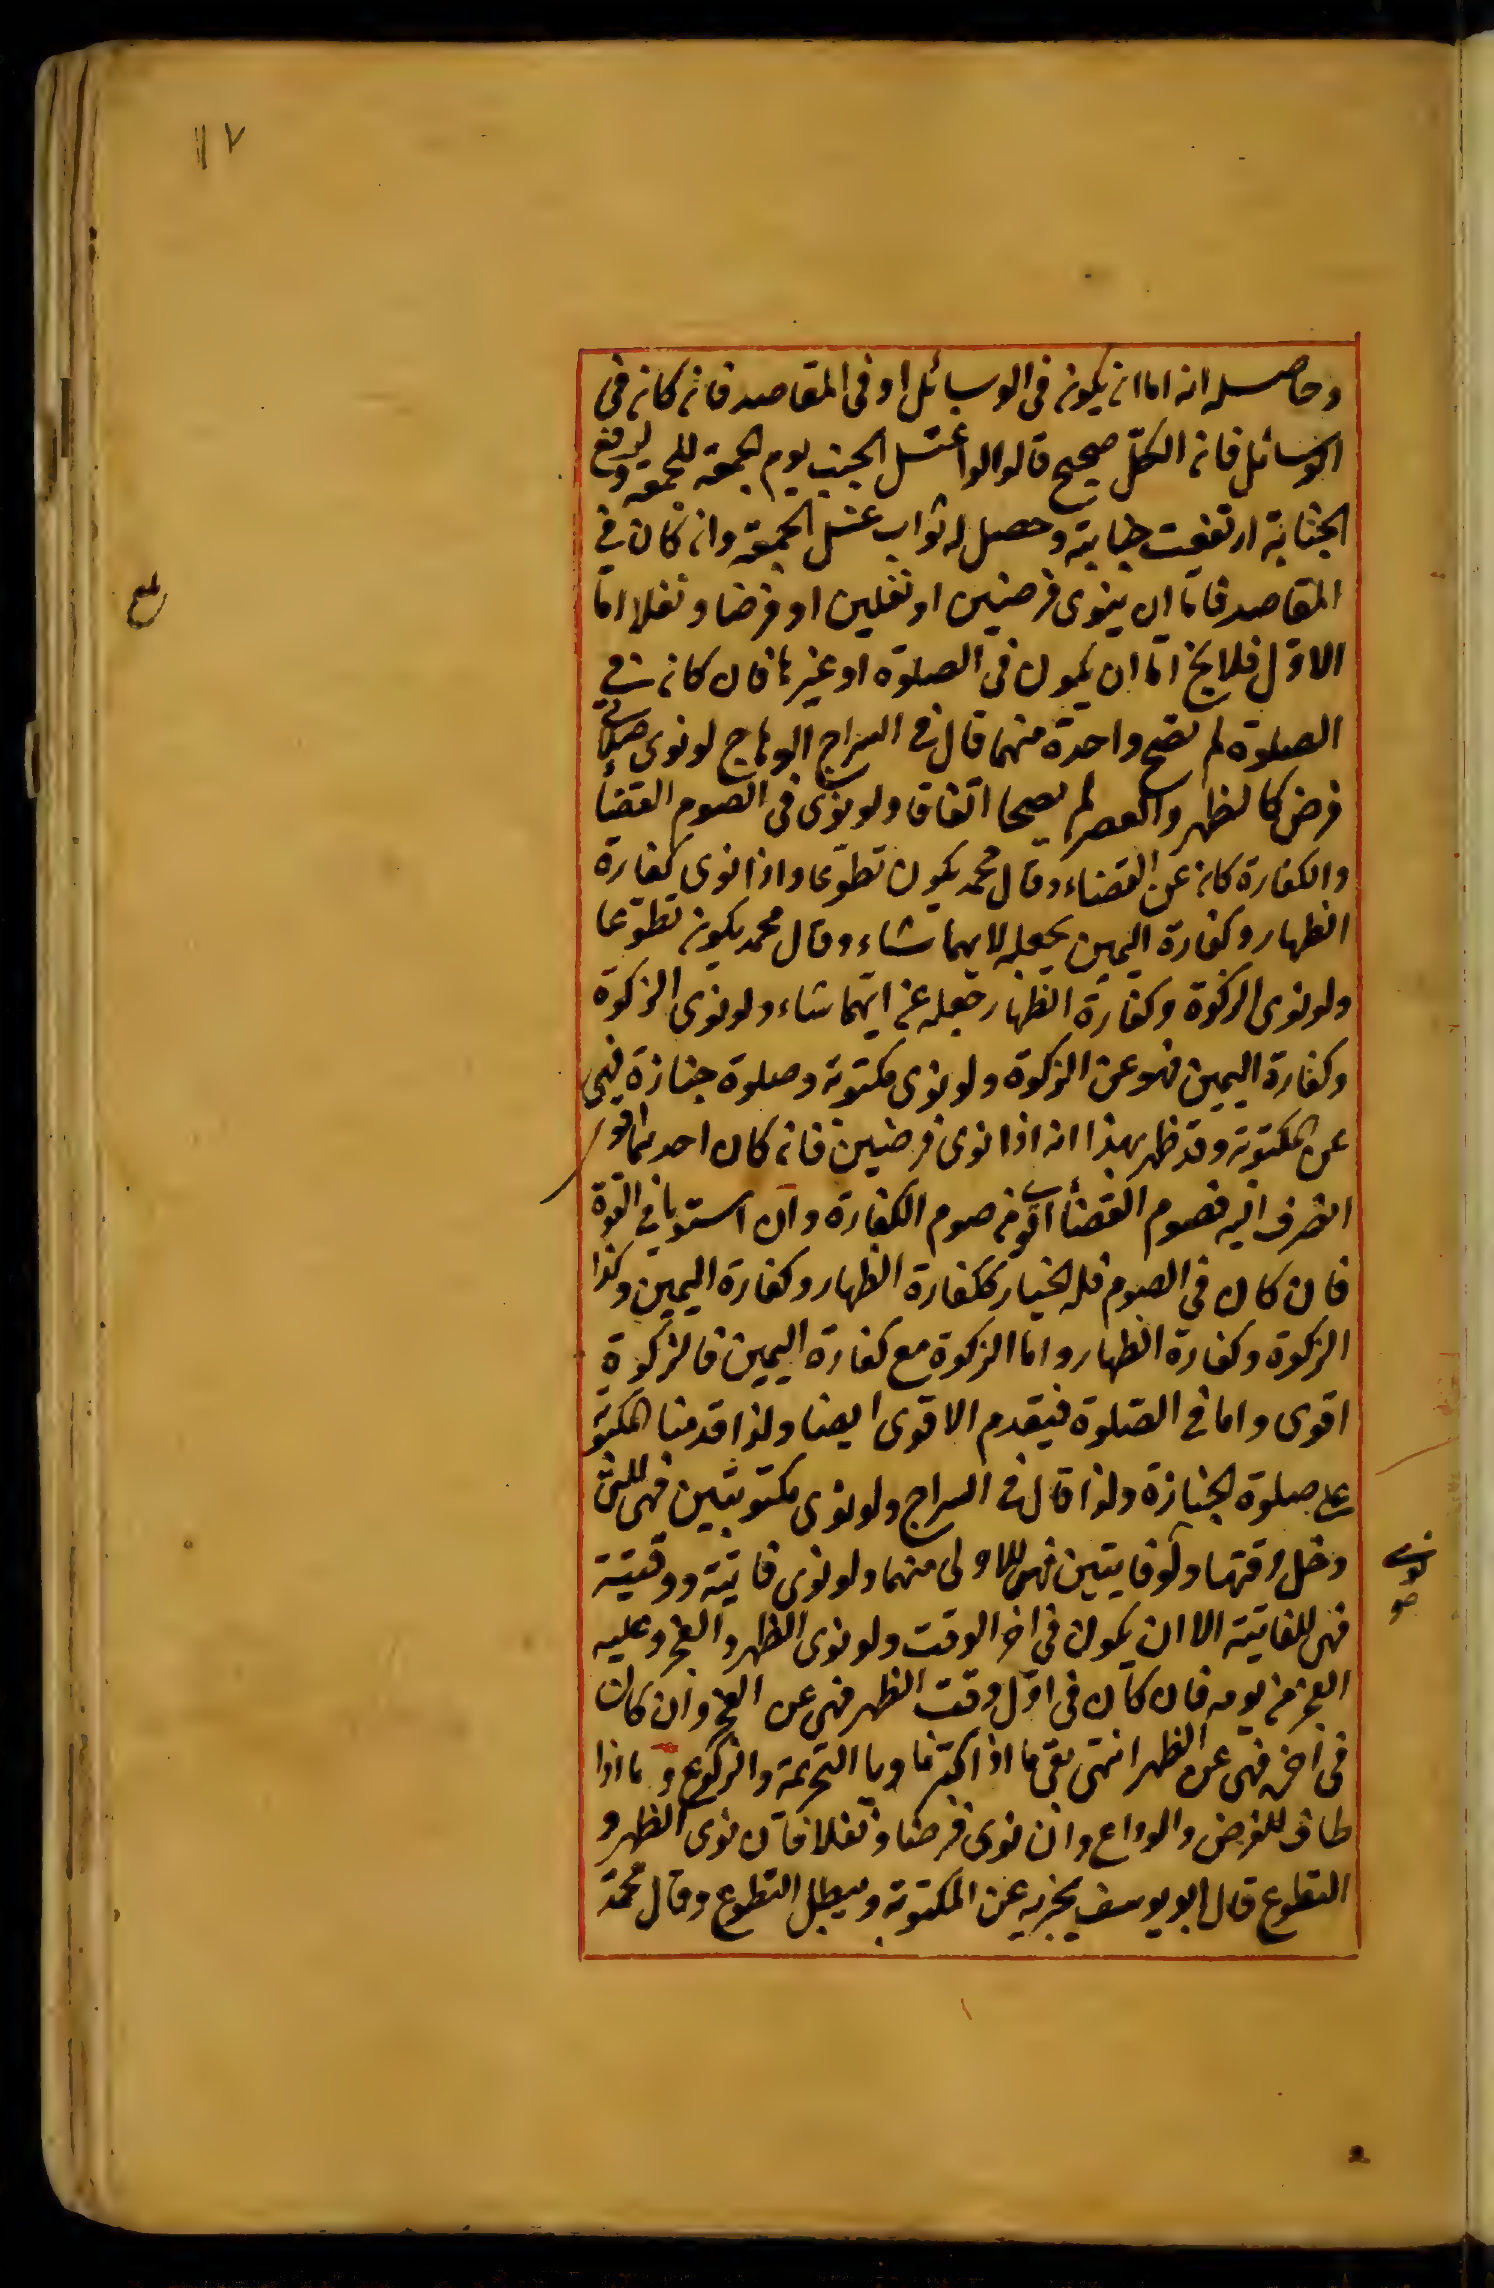 ١١٧
وحاصله انه اما ان يكون فى الوسائل او فى المقاصد فان كان فى
الوسائل فان الكلّ صحيح قالوا لو اغتسل الجنب يوم الجمعة للجمعة ولرفع
الجنابة ارتفعت جنابته وحصل له ثواب غسل الجمعة وان كان فى
المقاصد فامّا ان ينوى فرضين او نفلين او فرضا ونفلا امّا
الاوّل فلا يخ امّا ان يكون فى الصلوة او غيرها فان كان فى
الصلوة لم تصح واحدة منهما قال فى السراج الوهاج لو نوى صلاتى
فرض كالظهر والعصر لم يصحا اتفاقا ولو نوى فى الصوم القضأ
والكفارة كان عن القضاء وقال محمد يكون تطوّعا واذا نوى كفارة
الظهار وكفارة اليمين يجعله لايهما شاء وقال محمد يكون تطوّعا
ولو نوى الزكوة وكفارة الظهار جعله عن ايّهما شاء ولو نوى الزكوة
وكفارة اليمين فهو عن الزكوة ولو نوى مكتوبة وصلوة جنازة فهى
عن المكتوبة وقد ظهر بهذا انه اذا نوى فرضين فان كان احدهما اقو
انصرف اليه فصوم القضأ اقوى من صوم الكفارة وان استويا فى القوة
فان كان فى الصوم فله الخيار ككفارة الظهار وكفارة اليمين وكذا
الزكوة وكفارة الظهار واما الزكوة مع كفارة اليمين فالزكوة
اقوى واما فى الصّلوة فيقدم الاقوى ايضا ولذا قدمنا المكتوبة
على صلوة الجنازة ولذا قال فى السراج ولو نوى مكتوبتين فهى للتى
دخل وقتها ولو فايتتين فهى للاولى منهما ولو نوى فايتة ووقتيّة
فهى للفايتة الا ان يكون فى اخر الوقت ولو نوى الظهر والفجر وعليه
الفجر من يومه فان كان فى اوّل وقت الظهر فهى عن الفجر وان كان
فى اخره فهى عن الظهر انتهى بقى ما اذا كبّر ناويا التحريمة والركوع وما اذا
طاف للفرض والوداع وان نوى فرضا ونفلا فان نوى الظهر و
التطوع قال ابو يوسف يجزيه عن المكتوبة ويبطل التطوع وقال محمّد